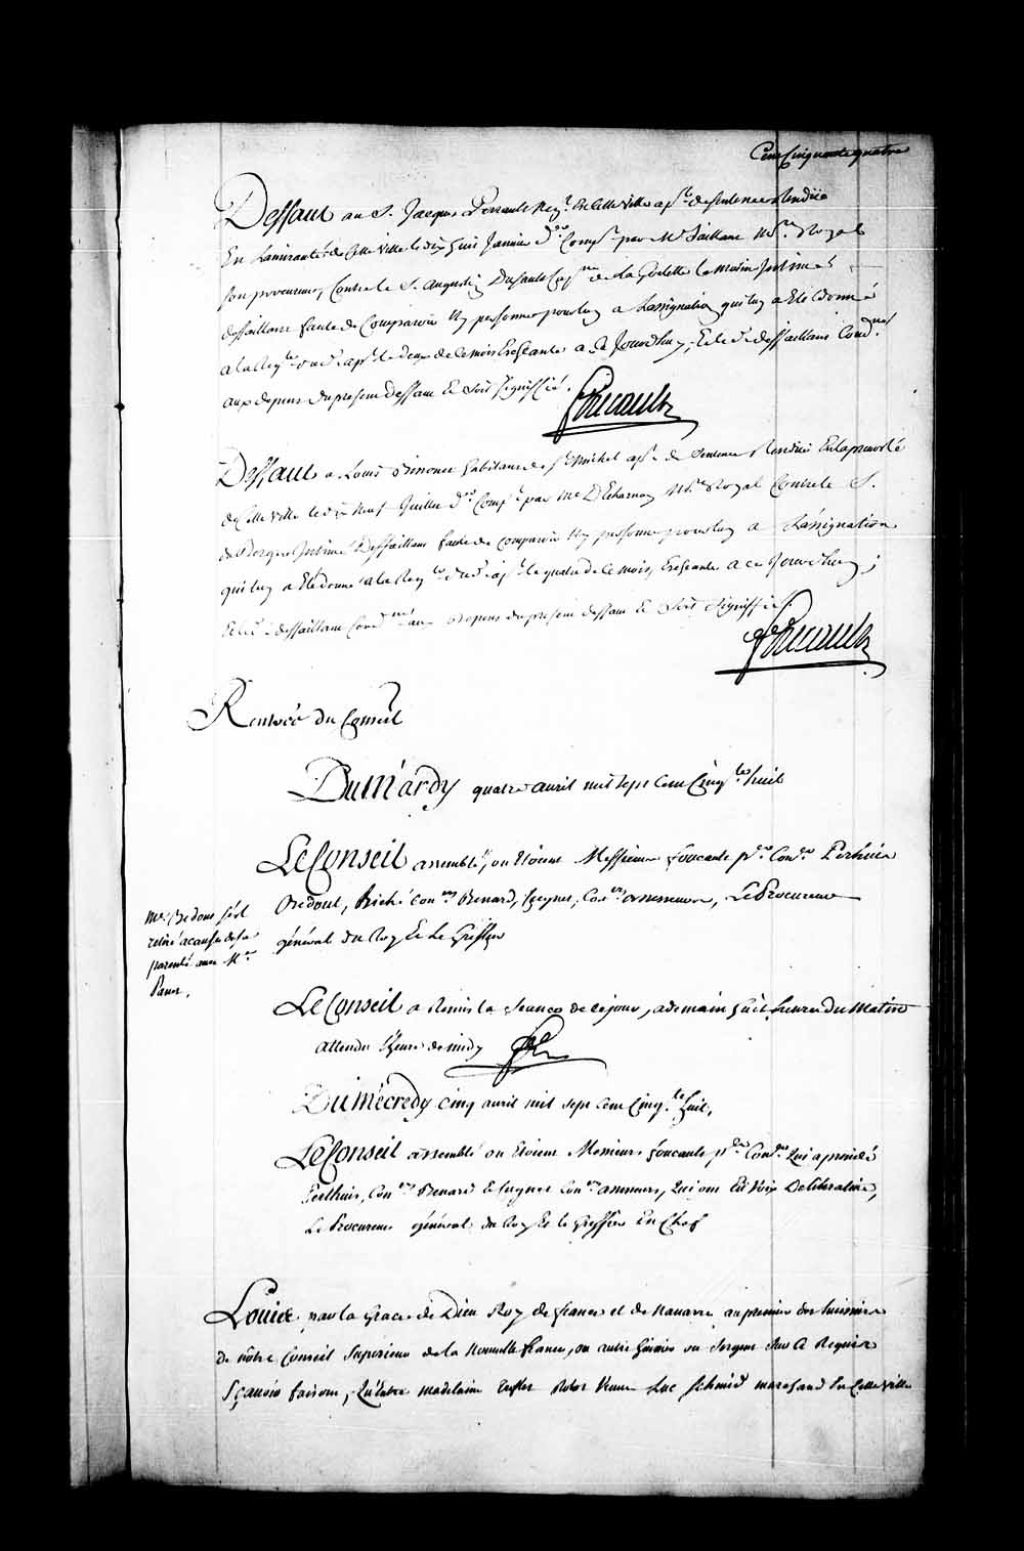 Cent Cinquante quatre
Deffaut au S. Jacques Perrault Neg.t en cette ville ap.t de sentence Rendüe
En Lamirauté de Cette ville le dix huit Janvier d.er Comp.t par M.e Saillant N.re Royal
son procureur, Contre le S. Augustin Dufault Cap.ne de la Goelette la marie Intimé
deffaillant faute de Comparoir Ny personne pour luy a Lassignation qui luy a Eté donné
a la Req.te dud. ap.t le deux de ce mois Echeante a ce Jourdhuy, Et led. deffaillant Cond.né
aux depens du present deffaut Et soit signiffié.
Foucault
Deffaut a Louis habitant de S.t Michel ap.t de sentence Rendüe En la prevosté
de Cette ville le dix Neuf Juillet d.er Comp.t par M.e Decharnay N.re Royal Contre le S.
Intimé Deffaillant faute de comparoir Ny personne pour luy a Lassignation
qui luy a Eté donné a la Req.te dud. ap.t le quatre de ce mois, Echeante a ce Jourdhuy;
Et led. deffaillant Cond.né aux Depens du present deffaut Et soit signiffié.
Foucault
Rentrée du Conseil
Du Mardy quatre avril mil sept Cent Cinq.te huit
Le Conseil assemblé, ou Etoient Messieurs foucault p.er Con.er Perthuis
Bedout, Riché Con.ers Benard, Cugnet, Con.ers assesseurs, Le Procureur
général du Roy Et Le Greffier
Mr. Bedout s'est
retiré a cause de sa
parenté avec M.
Le Conseil a Remis la seance de ce jour, a demain huit heures du Matin
attendu l'heure de midy
Du Mécredy cinq avril mil sept Cent Cinq.te huit,
Le Conseil assemblé ou Etoient Messieurs foucault p.er Con.er qui a présidé
Perthuis, Con.er Benard et Cugnet Con.ers assesseurs, qui ont Eû voix Deliberative,
Le Procureur général du Roy Et le Greffier En Chef
Louis par la Grace de Dieu Roy de france et de Navarre au premier des huissiers
de nôtre Conseil Superieur de la Nouvelle france, ou autre huissier ou sergent sur ce Requis
Sçavoir faisons, qu'entre madelaine veuve Luc Schmid marchand En Cette ville